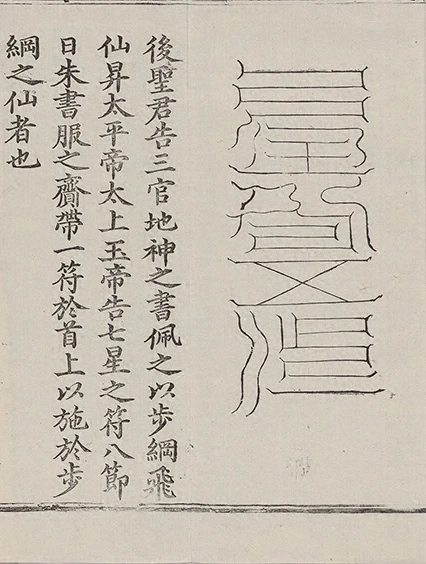 後聖君告三官地神之書佩之以步綱飛
仙昇太平帝太上玉帝告七星之符八節
日朱書服之齎帶一符於首上以施於步
綱之仙者也